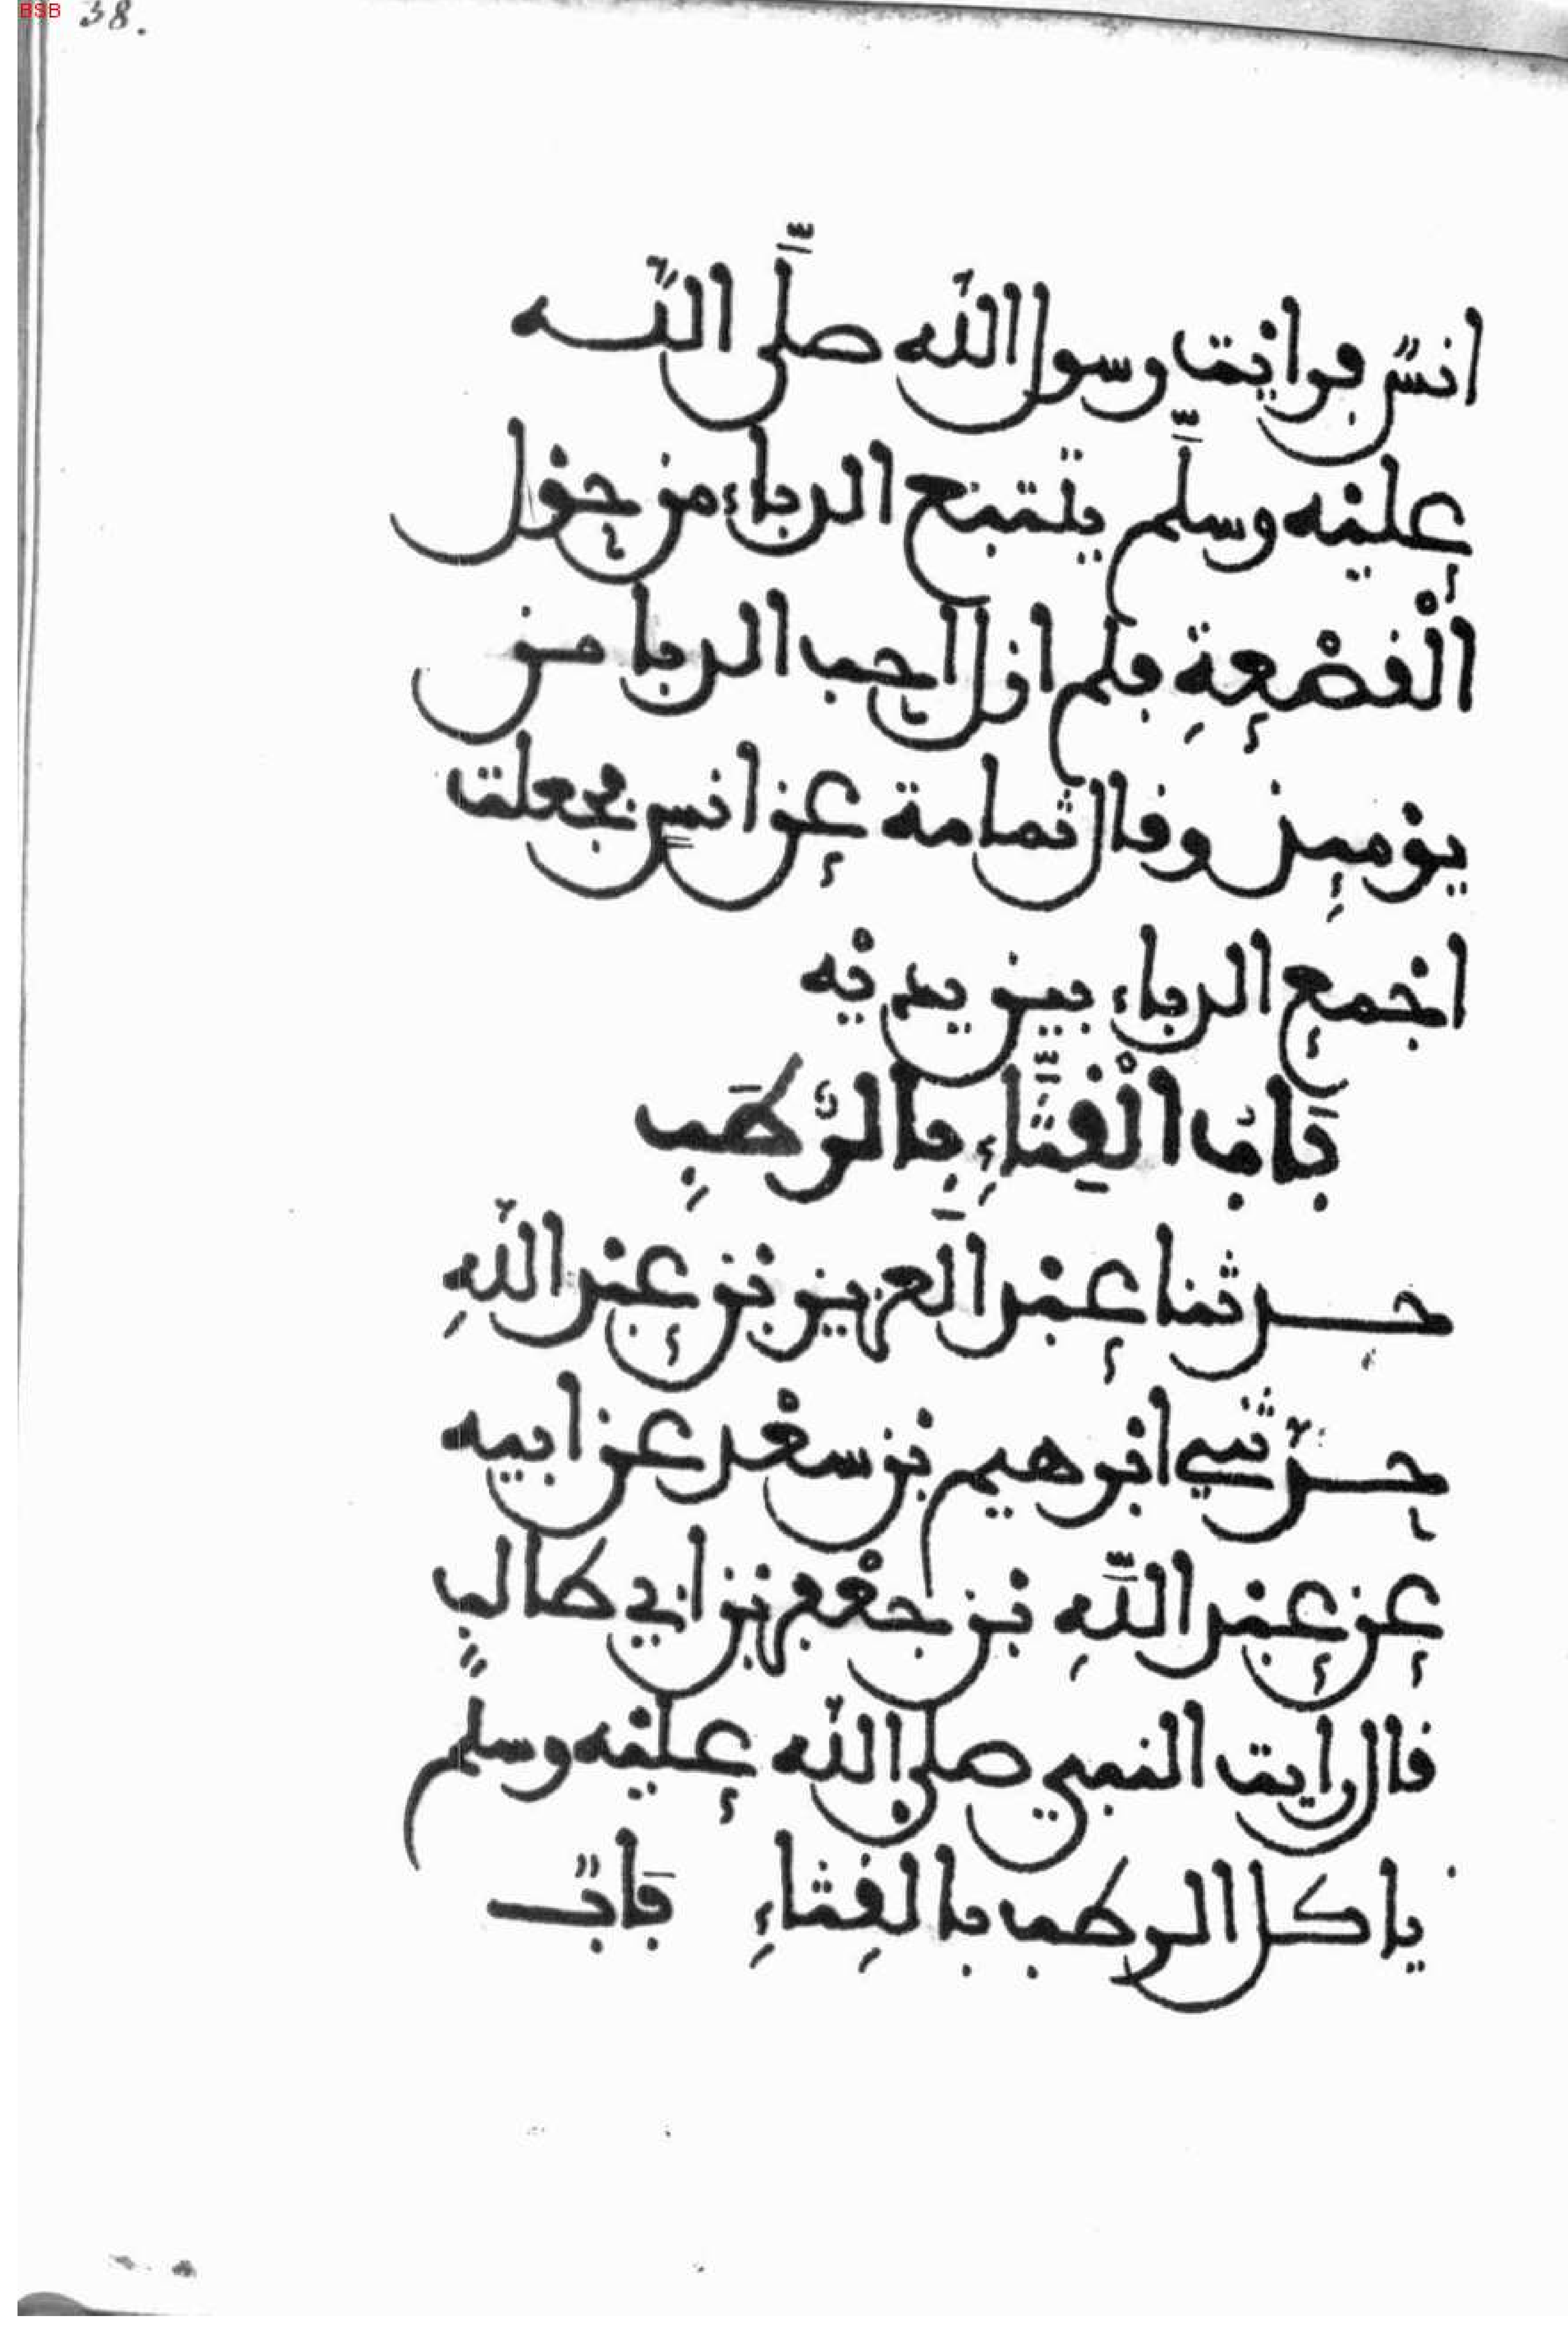 BSB 38.
انسٌ فرايْت رسول اللّه صلَّى اللّه
عليْه وسلَّم يتتبع الدباء من حوْل
الْقصْعةِ فلم ازل احب الدبا من
يوْمىِٕذ وقال ثمامة عن انسٍ فجعلت
اجْمع الدباء بين يديْه
بَابُ الْقِثَّاءِ بِالرُّطَبِ
حدثنا عبْد العزيز بْن عبْد اللّهِ
حدّثني ابْرهيم بْن سعْد عن ابيه
عن عبْد اللَّهِ بْن جعْفر بْن ابي طالبٍ
قال رايت النبي صلى اللّه عليْه وسلم
ياكل الرطب بالقِثاءِ بَابٌ